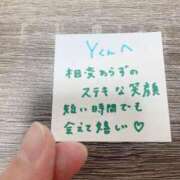 Yくんへ
相変わらずの
ステキな笑顔
短い時間でも
会えて嬉しい♡